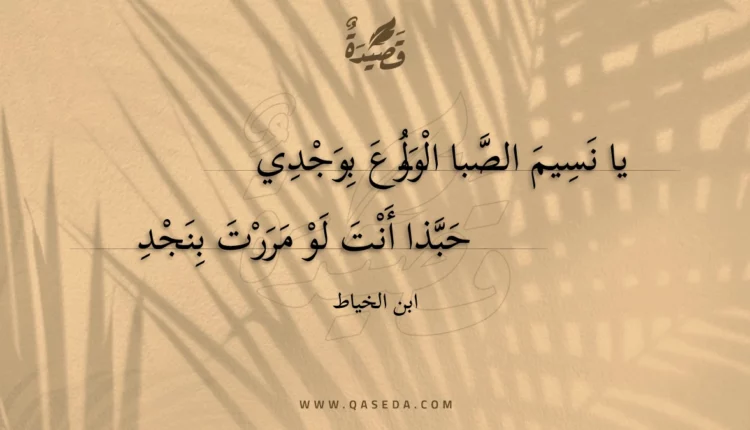 قَصِيدَةٌ
يا نَسِيمَ الصَّبا الْوَلُوعَ بِوَجْدِي
حَبَّذا أَنْتَ لَوْ مَرَرْتَ بِنَجْدِ
ابن الخياط
WWW.QASEDA.COM